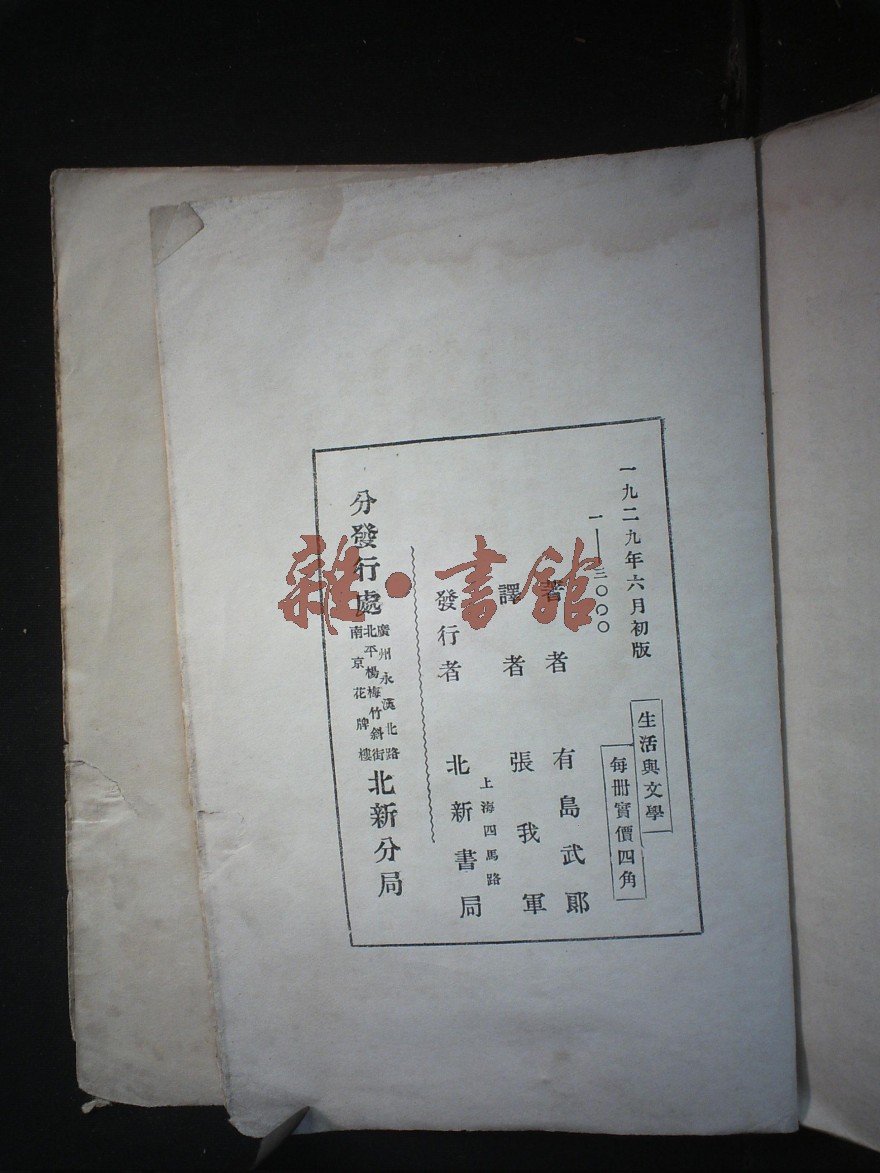 一九二九年六月初版
一——三〇〇〇
生活與文學
每冊實價四角
著者 有島武郎
譯者 張我軍
發行者 上海四馬路 北新書局
分發行處
廣州永漢北路
北平楊梅竹斜街
南京花牌樓
北新分局
雜·書館